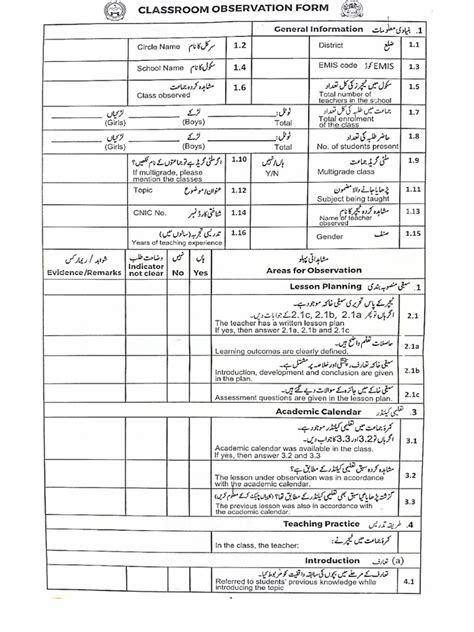 CLASSROOM OBSERVATION FORM
General Information بنیادی معلومات .1
Circle Name سرکل کا نام 1.2 District ضلع 1.1
School Name سکول کا نام 1.4 EMIS code کوڈ EMIS 1.3
مشاہدہ کردہ جماعت 1.6 سکول میں ٹیچرز کی کل تعداد 1.5
Class observed Total number of teachers in the school
لڑکیاں لڑکے ٹوٹل: جماعت میں طلبہ کی کل تعداد 1.7
(Girls) (Boys) Total Total enrolment of the class
لڑکیاں لڑکے ٹوٹل: حاضر طلبہ کی تعداد 1.8
(Girls) (Boys) Total No. of students present
اگر ملٹی گریڈ ہے تو جماعتوں کے نام لکھیں؟ 1.10 ہاں/نہیں ملٹی گریڈ جماعت 1.9
If multigrade, please mention the classes Y/N Multigrade class
Topic عنوان/موضوع 1.12 پڑھایا جانے والا مضمون 1.11
Subject being taught
CNIC No. شناختی کارڈ نمبر 1.14 مشاہدہ کردہ ٹیچر کا نام 1.13
Name of teacher observed
تدریسی تجربہ (سالوں میں) 1.16 Gender صنف 1.15
Years of teaching experience
شواہد / ریمارکس وضاحت طلب نہیں ہاں مشاہداتی پہلو
Evidence/Remarks Indicator not clear No Yes Areas for Observation
Lesson Planning سبقی منصوبہ بندی .1
ٹیچر کے پاس تحریری سبقی خاکہ موجود ہے۔ 2.1
اگر ہاں تو 2.1a, 2.1b, 2.1c کے جوابات دیں۔
The teacher has a written lesson plan
If yes, then answer 2.1a, 2.1b and 2.1c
حاصلات تعلم واضح ہیں۔ 2.1a
Learning outcomes are clearly defined.
2.1b
Introduction, development and conclusion are given in the plan.
سبقی خاکے میں جائزہ کے سوالات دیے گئے ہیں۔ 2.1c
Assessment questions are given in the lesson plan.
Academic Calendar تعلیمی کیلنڈر .3
کمرۂ جماعت میں تعلیمی کیلنڈر موجود ہے۔ 3.1
اگر ہاں تو 3.2 اور 3.3 کا جواب دیں۔
Academic calendar was available in the class.
If yes, then answer 3.2 and 3.3
مشاہدہ کردہ سبق تعلیمی کیلنڈر کے مطابق ہے؟ 3.2
The lesson under observation was in accordance with the academic calendar.
گزشتہ پڑھایا گیا سبق بھی تعلیمی کیلنڈر کے مطابق تھا؟ 3.3
The previous lesson was also in accordance with the academic calendar.
Teaching Practice طریقہ تدریس .4
کمرۂ جماعت میں ٹیچر نے:
In the class, the teacher:
Introduction تعارف (a)
تعارف کے مرحلے میں بچوں کی سابقہ واقفیت کو مربوط کیا۔ 4.1
Referred to students' previous knowledge while introducing the topic